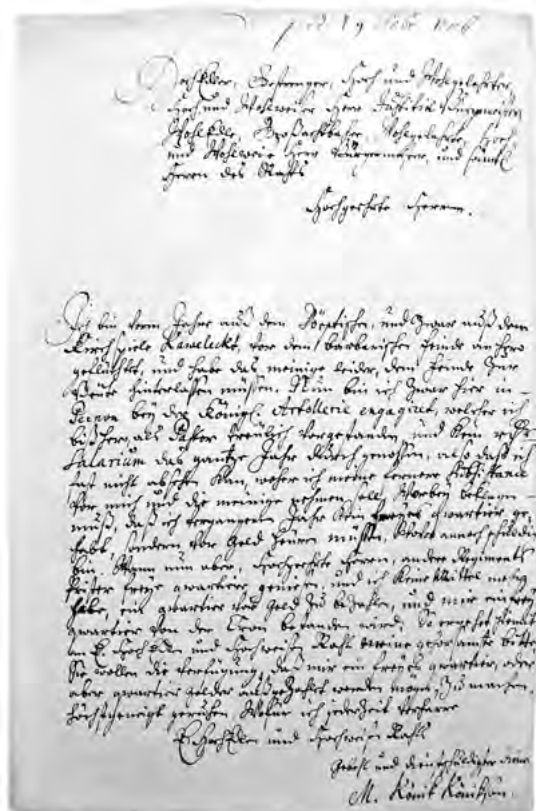 HochEdler, Gestrenger, Hoch und Wohlgelahrter,
Hoch und Wohlweiser Herr Justitii Bürgemeister
WohlEdle, Großachtbahre, Wohlgelahrte, Hoch
und Wohlweise Herrn Bürgemeister, und sämtl
Herrn des Rahts
Hochgeehrte Herren.
Ich bin vorm Jahre auß dem Dörptischen, und zwar auß dem
Kirchspiele Kawelecht, vor dem barbarischen Feinde anhero
geflüchtet, und habe das meinige leider, dem Feinde zur
Beute hinterlaßen müßen. Nun bin ich zwar hier in
Pernau bey der Königl. Artollerie engagiret, welcher ich
bißher, als Pastor treulich vorgestanden, und kein
Salarium das gantze Jahr durch genoßen, also daß ich
fast nicht absehen kan, woher ich meine fernere Subsistance
vor mich und die meinige nehmen soll, Worbey beklagen
muß, daß ich vergangenem Jahr kein freyes quartier ge
habt, sondern vor Geld heuren müßen, annoch schuldig
bin. Wann nun aber, Hochgeehrte Herren, andere Regiments
Priester freye quartier genießen, und ich keine Mittel mehr
habe, ein quartier vor Geld zu bezahlen, und mir ein frey
quartier von der Cron bestanden wird; So ergehet hiemit
an E. HochEdlen und Hochweisen Raht meine gehorsamte bitte
Sie wollen die Verfügung, daß mir ein freyes quartier, oder
aber quartier gelder außgezahlt werden mögen, zu machen,
höchstgeneigt geruhen, Wofür ich jederzeit verharre
E. HochEdlen und Hochweisen Rahts
Gebeht und dienstschuldigster diener
M. Könik Könikson.